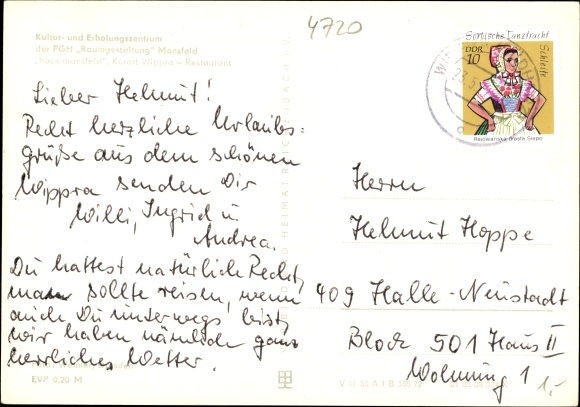 4720
Kultur- und Erholungszentrum
der PGH „Raumgestaltung" Mansfeld
„haus mansfeld", Kurort Wippra – Restaurant
Lieber Helmut!
Recht herzliche Urlaubs-
grüße aus dem schönen
Wippra senden Dir
Willi, Ingrid u
Andrea.
Du hattest natürlich Recht,
man sollte reisen, wenn
auch Du unterwegs bist,
wir haben nämlich ganz
herrliches Wetter.
EVP 0,20 M
Sorbische Tanztracht
Schleife
DDR
10
Rejowanska drasta Slepo
Herrn
Helmut Hoppe
409 Halle-Neustadt
Block 501 Haus II
Wohnung 1
1,-
V 11 30 A 1 B